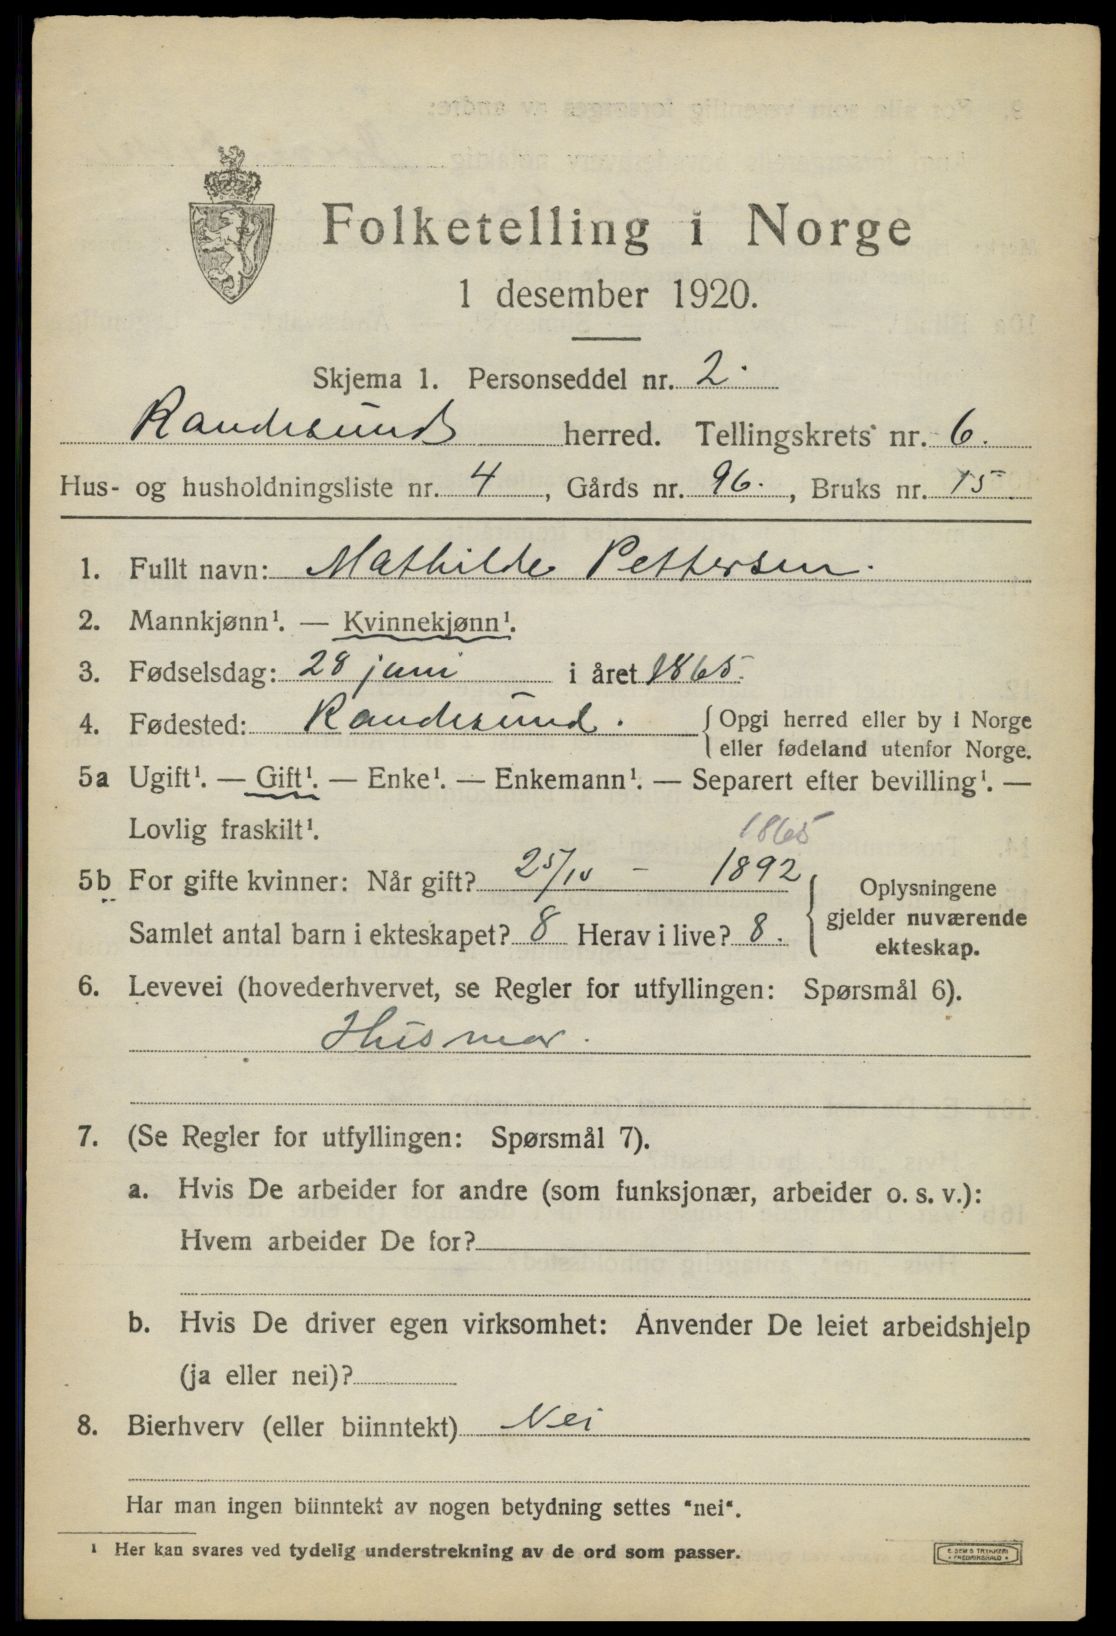 Folketelling i Norge
1 desember 1920.
Skjema 1. Personseddel nr. 2.
Randesund herred. Tellingskrets nr. 6.
Hus- og husholdningsliste nr. 4, Gårds nr. 96., Bruks nr. 15
1. Fullt navn: Mathilde Pettersen.
2. Mannkjønn¹. — Kvinnekjønn¹.
3. Fødselsdag: 28 juni i året 1865.
4. Fødested: Randesund. { Opgi herred eller by i Norge
eller fødeland utenfor Norge.
5a Ugift¹. — Gift¹. — Enke¹. — Enkemann¹. — Separert efter bevilling¹. —
Lovlig fraskilt¹.
1865
5b For gifte kvinner: Når gift? 25/10 - 1892
Samlet antal barn i ekteskapet? 8 Herav i live? 8.
Oplysningene
gjelder nuværende
ekteskap.
6. Levevei (hovederhvervet, se Regler for utfyllingen: Spørsmål 6).
Husmor.
7. (Se Regler for utfyllingen: Spørsmål 7).
a. Hvis De arbeider for andre (som funksjonær, arbeider o. s. v.):
Hvem arbeider De for?
b. Hvis De driver egen virksomhet: Anvender De leiet arbeidshjelp
(ja eller nei)?
8. Bierhverv (eller biinntekt) Nei
Har man ingen biinntekt av nogen betydning settes "nei".
¹ Her kan svares ved tydelig understrekning av de ord som passer.